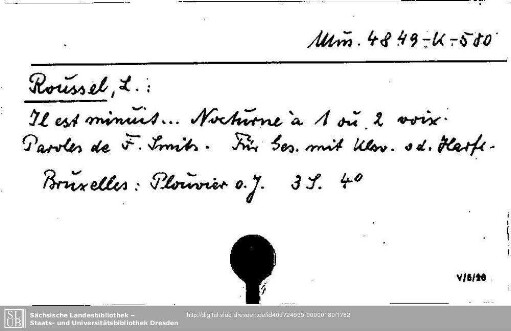 Mus. 4849-K-580
Roussel, L.:
Il est minuit... Nocturne a 1 ou 2 voix.
Paroles de F. Smits. Für Ges. mit Klav. od. Harfe.
Bruxelles: Plouvier o. J. 3 S. 4°
V/5/20
SLUB
Sächsische Landesbibliothek –
Staats- und Universitätsbibliothek Dresden